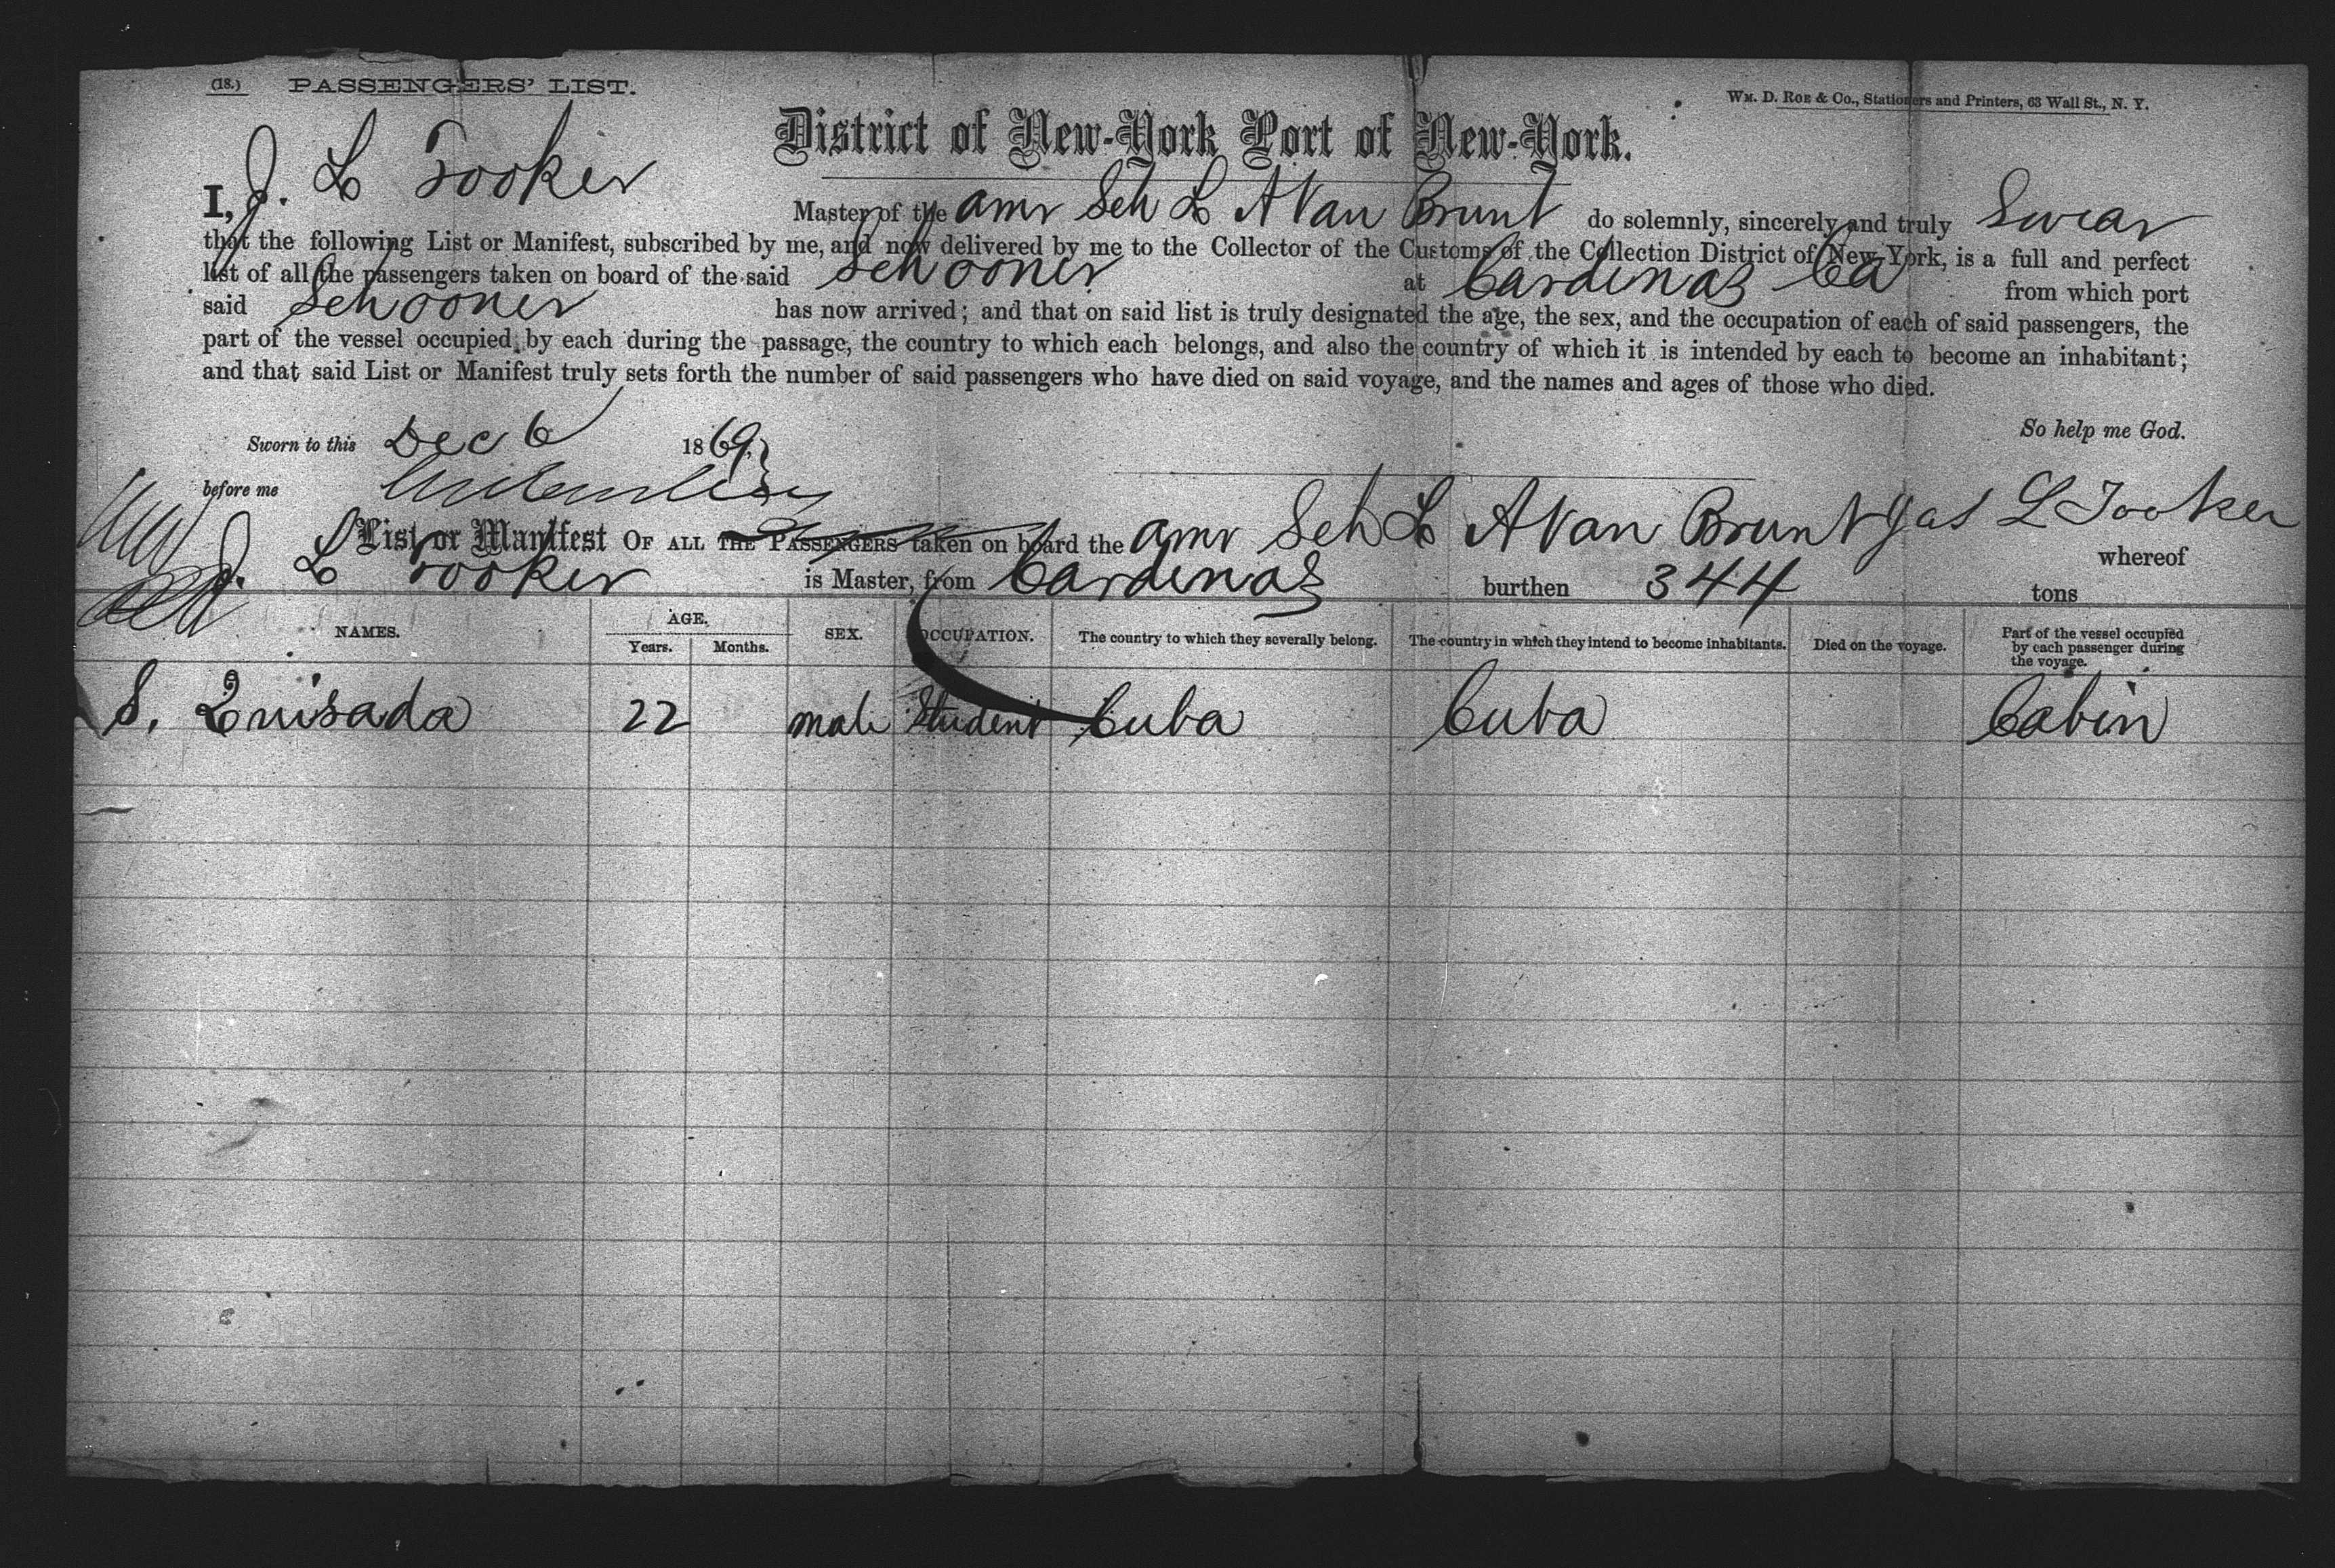 (18.) PASSENGERS' LIST.
Wm. D. Roe & Co., Stationers and Printers, 63 Wall St., N. Y.
District of New-York Port of New-York.
I, J. L Tooker Master of the Amr Sch L A Van Brunt do solemnly, sincerely and truly Swear
that the following List or Manifest, subscribed by me, and now delivered by me to the Collector of the Customs of the Collection District of New York, is a full and perfect
list of all the passengers taken on board of the said Schooner at Cardenas Ca from which port
said Schooner has now arrived; and that on said list is truly designated the age, the sex, and the occupation of each of said passengers, the
part of the vessel occupied by each during the passage, the country to which each belongs, and also the country of which it is intended by each to become an inhabitant;
and that said List or Manifest truly sets forth the number of said passengers who have died on said voyage, and the names and ages of those who died.
So help me God.
Sworn to this Dec 6 1869,
before me
Jas L Tooker
List or Manifest OF ALL THE PASSENGERS taken on board the Amr Sch L A Van Brunt whereof
J. L Tooker is Master, from Cardenas burthen 344 tons
NAMES. AGE. Years. Months. SEX. OCCUPATION. The country to which they severally belong. The country in which they intend to become inhabitants. Died on the voyage. Part of the vessel occupied by each passenger during the voyage.
S. Quisada 22 male Student Cuba Cuba Cabin